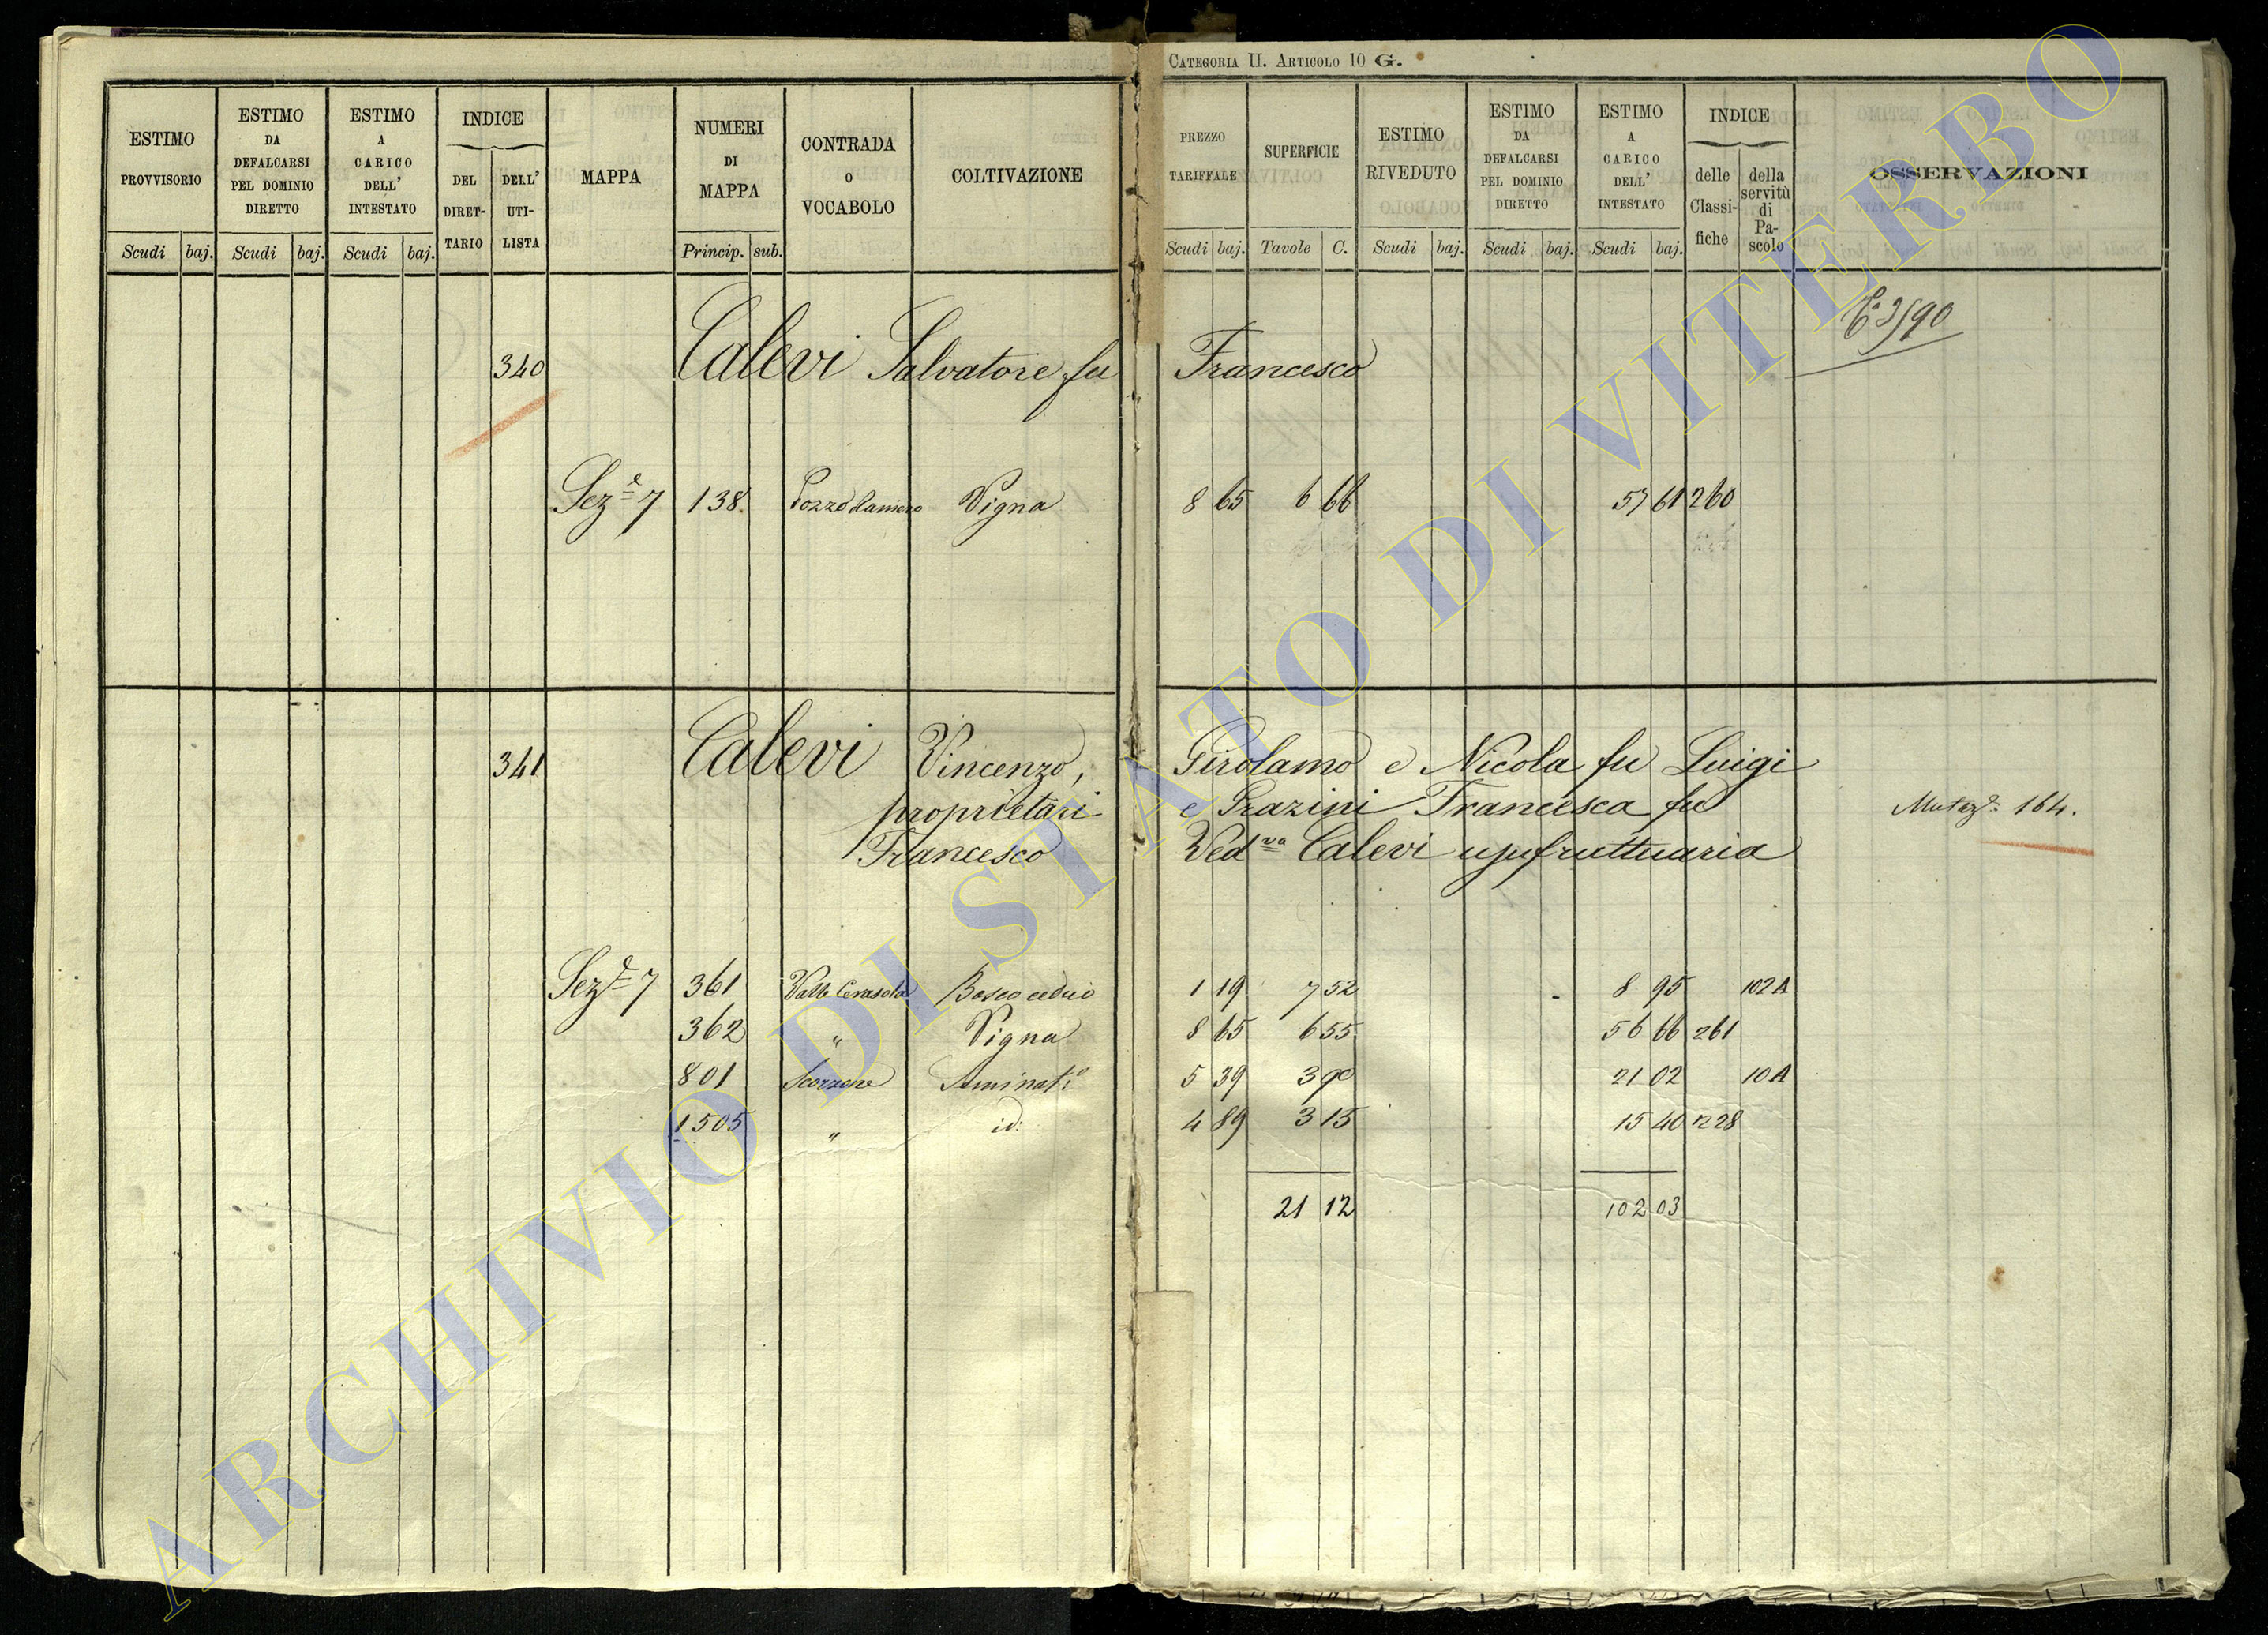 CATEGORIA II. ARTICOLO 10 G.
ESTIMO PROVVISORIO
Scudi baj.
ESTIMO DA DEFALCARSI PEL DOMINIO DIRETTO
Scudi baj.
ESTIMO A CARICO DELL' INTESTATO
Scudi baj.
INDICE
DEL DIRET-TARIO
DELL' UTI-LISTA
MAPPA
NUMERI DI MAPPA
Princip. sub.
CONTRADA O VOCABOLO
COLTIVAZIONE
PREZZO TARIFFALE
Scudi baj.
SUPERFICIE
Tavole C.
ESTIMO RIVEDUTO
Scudi baj.
ESTIMO DA DEFALCARSI PEL DOMINIO DIRETTO
Scudi baj.
ESTIMO A CARICO DELL' INTESTATO
Scudi baj.
INDICE
delle Classi-fiche
della servitù di Pa-scolo
OSSERVAZIONI
340 Calevi Salvatore fu Francesco
Sez.e 7 138. Pozzo Ramiero Vigna 8 65 6 66 57 61 260
341 Calevi Vincenzo, Girolamo e Nicola fu Luigi
proprietari e Grazini Francesca fu
Mutaz. 164.
Francesco Ved.va Calevi usufruttuaria
Sez.e 7 361 Valle Cerasola Bosco ceduo 1 19 7 52 8 95 102A
362 " Vigna 8 65 6 55 56 66 261
801 Scorzone Sminat.o 5 39 3 90 21 02 10A
1505 " id: 4 89 3 15 15 40 1228
21 12 102 03
ARCHIVIO DI STATO DI VITERBO